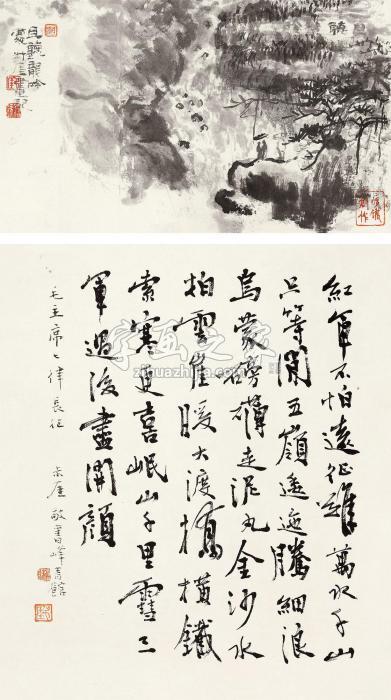 且聽龍吟
紅軍不怕遠征難萬水千山
只等閒五嶺逶迤騰細浪
烏蒙磅礴走泥丸金沙水
拍雲崖暖大渡橋橫鐵
索寒更喜岷山千里雪三
軍過後盡開顏
毛主席七律長征 敬書峰青館
字画之家
zihuazhijia.com